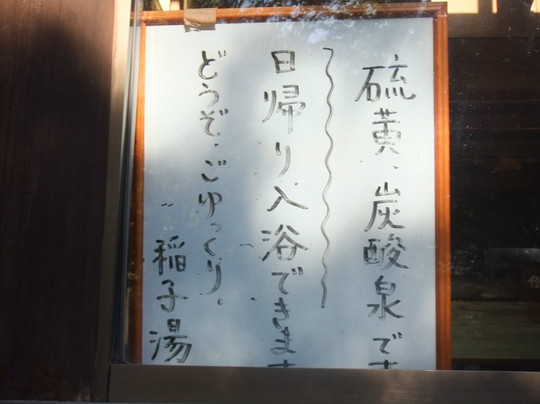 硫黄、炭酸泉です
日帰り入浴できます
どうぞ、ごゆっくり。
〃稲子湯